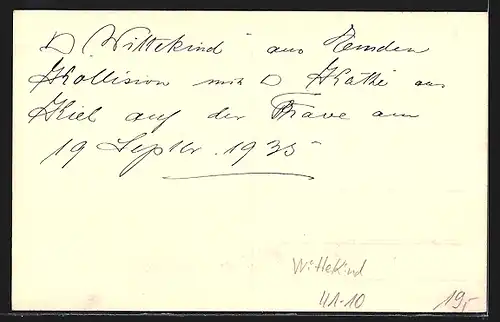 D. "Wittekind" aus Emden
Kollision mit D Käthe aus
Kiel auf der Trave am
19 Septbr. 1935
Wittekind
41-10
19,-